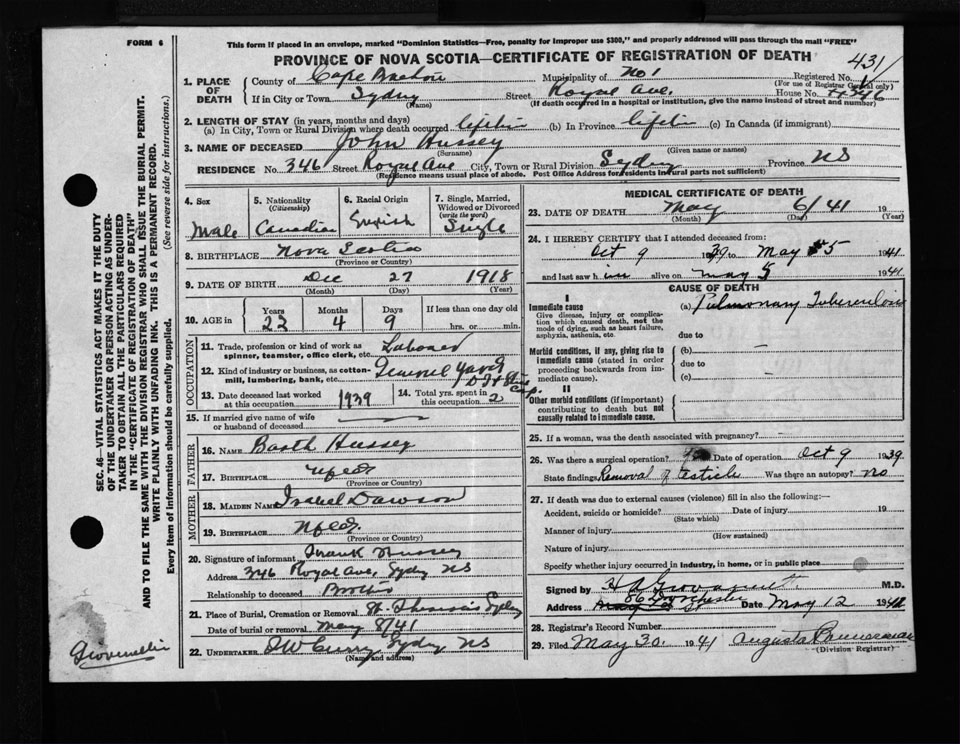 FORM 6
This form if placed in an envelope, marked "Dominion Statistics—Free, penalty for improper use $300," and properly addressed will pass through the mail "FREE"
PROVINCE OF NOVA SCOTIA—CERTIFICATE OF REGISTRATION OF DEATH
431
1. PLACE OF DEATH County of Cape Breton Municipality of No 1 Registered No.
(For use of Registrar General only)
If in City or Town Sydney Street Royal Ave. House No. 346
(Name) (If death occurred in a hospital or institution, give the name instead of street and number)
2. LENGTH OF STAY (in years, months and days)
(a) In City, Town or Rural Division where death occurred lifetime (b) In Province lifetime (c) In Canada (if immigrant)
3. NAME OF DECEASED John Hussey
(Surname) (Given name or names)
RESIDENCE No. 346 Street Royal Ave City, Town or Rural Division Sydney Province NS
(Residence means usual place of abode. Post Office Address for residents in rural parts not sufficient)
4. Sex 5. Nationality (Citizenship) 6. Racial Origin 7. Single, Married, Widowed or Divorced (write the word)
Male Canadian Single
8. BIRTHPLACE Nova Scotia
(Province or Country)
9. DATE OF BIRTH Dec 27 1918
(Month) (Day) (Year)
10. AGE in Years Months Days If less than one day old
22 4 9 hrs. or min.
OCCUPATION
11. Trade, profession or kind of work as spinner, teamster, office clerk, etc. Laborer
12. Kind of industry or business, as cotton-mill, lumbering, bank, etc. General Yard
13. Date deceased last worked at this occupation 1939 14. Total yrs. spent in this occupation 2
15. If married give name of wife or husband of deceased
FATHER
16. NAME Barth Hussey
17. BIRTHPLACE Nfld
(Province or Country)
MOTHER
18. MAIDEN NAME Isabel Dawson
19. BIRTHPLACE Nfld.
(Province or Country)
20. Signature of informant Frank Hussey
Address 346 Royal Ave, Sydney NS
Relationship to deceased Brother
21. Place of Burial, Cremation or Removal St. Theresa's Sydney
Date of burial or removal May 8/41
22. UNDERTAKER DW Curry Sydney NS
(Name and address)
MEDICAL CERTIFICATE OF DEATH
23. DATE OF DEATH May 6/41 19
(Month) (Day) (Year)
24. I HEREBY CERTIFY that I attended deceased from:
Oct 9 1939 to May 5 1941
and last saw h im alive on May 5 1941
CAUSE OF DEATH
I
Immediate cause
Give disease, injury or complication which caused death, not the mode of dying, such as heart failure, asphyxia, asthenia, etc.
(a) Pulmonary Tuberculosis
due to
Morbid conditions, if any, giving rise to immediate cause (stated in order proceeding backwards from immediate cause).
(b) —
due to
(c) —
II
Other morbid conditions (if important) contributing to death but not causally related to immediate cause.
25. If a woman, was the death associated with pregnancy?
26. Was there a surgical operation? Date of operation Oct 9 1939
State findings Removal of testicle Was there an autopsy? no
27. If death was due to external causes (violence) fill in also the following:—
Accident, suicide or homicide? Date of injury 19
(State which)
Manner of injury
(How sustained)
Nature of injury
Specify whether injury occurred in industry, in home, or in public place
Signed by M.D.
Address Date May 12 1941
28. Registrar's Record Number
29. Filed May 30. 1941 Augusta
(Division Registrar)
SEC. 46—VITAL STATISTICS ACT MAKES IT THE DUTY
OF THE UNDERTAKER OR PERSON ACTING AS UNDER-
TAKER TO OBTAIN ALL THE PARTICULARS REQUIRED
IN THE "CERTIFICATE OF REGISTRATION OF DEATH"
AND TO FILE THE SAME WITH THE DIVISION REGISTRAR WHO SHALL ISSUE THE BURIAL PERMIT.
WRITE PLAINLY WITH UNFADING INK. THIS IS A PERMANENT RECORD.
Every item of Information should be carefully supplied. (See reverse side for instructions.)